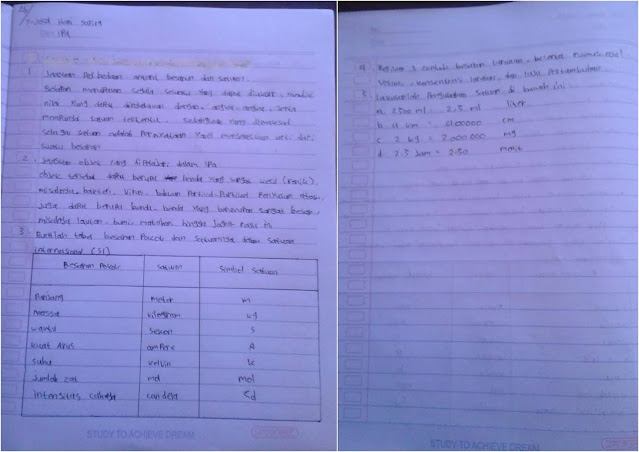 IPA
1. Jelaskan Perbedaan antara besaran dan satuan!
Besaran merupakan segala sesuatu yang dapat diukur, memiliki
nilai yang dapat dinyatakan dengan angka-angka, serta
mempunyai satuan tertentu. Sedangkan yang dimaksud
dengan satuan adalah Pernyataan yang menjelaskan arti dari
suatu besaran
2. Jelaskan objek yang dipelajari dalam IPA
objek tersebut dapat berupa benda yang sangat kecil (renik),
misalnya, bakteri, virus, bahkan Partikel-Partikel Penyusun atom,
juga dapat berupa benda-benda yang berukuran sangat besar,
misalnya lautan, bumi, matahari hingga jagat raya ini
3. Buatlah tabel besaran Pokok dan satuannya dalam satuan
internasional (SI)
Besaran Pokok satuan Simbol satuan
Panjang Meter m
Massa kilogram kg
waktu Sekon s
kuat Arus ampere A
suhu kelvin k
Jumlah zat mol mol
intensitas cahaya candela Cd
STUDY TO ACHIEVE DREAM
4. 3 contoh besaran turunan, beserta rumus,
satuan, konsentrasi larutan, dan laju Pertumbuhan
5 satuan di bawah ini
a. 2500 ml = 2.5 ml liter
b cm
c 2 kg = 2.000.000 mg
d 2.5 Jam = menit
STUDY TO ACHIEVE DREAM